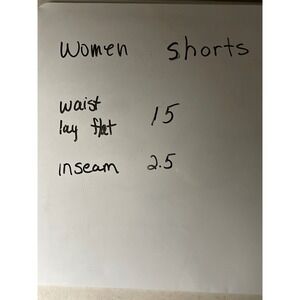 Women shorts
waist
lay flat 15
inseam 2.5